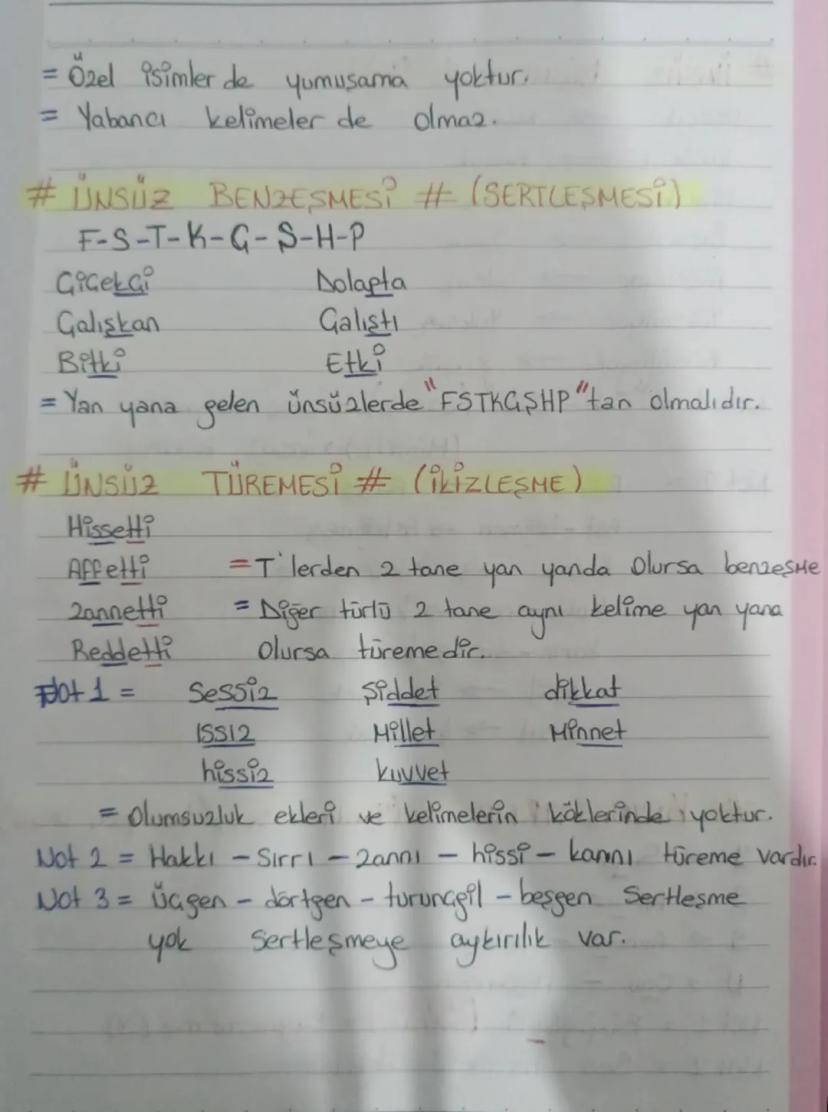 = Özel isimler de yumusama yoktur.
= Yabancı kelimeler de olmaz.
# ÜNSÜZ BENZEŞMESİ # (SERTLEŞMESİ)
F-S-T-K-Ç-Ş-H-P
Çiçekçi Dolapta
Çalışkan Çalıştı
Bitki Etki
= Yan yana gelen ünsüzlerde "FSTKÇŞHP" tan olmalıdır.
# ÜNSÜZ TÜREMESİ # (İKİZLEŞME)
Hissetti
Affetti = T'lerden 2 tane yan yanda olursa benzeşme
Zannetti = Diğer türlü 2 tane aynı kelime yan yana
Reddetti olursa türemedir.
Not 1 = Sessiz Şiddet dikkat
ıssız Millet Minnet
hissiz kuvvet
= Olumsuzluk ekleri ve kelimelerin köklerinde yoktur.
Not 2 = Hakkı - Sırrı - zannı - hissi - kannı türeme vardır.
Not 3 = Üçgen - dörtgen - turunçgil - beşgen Sertleşme
yok sertleşmeye aykırılık var.